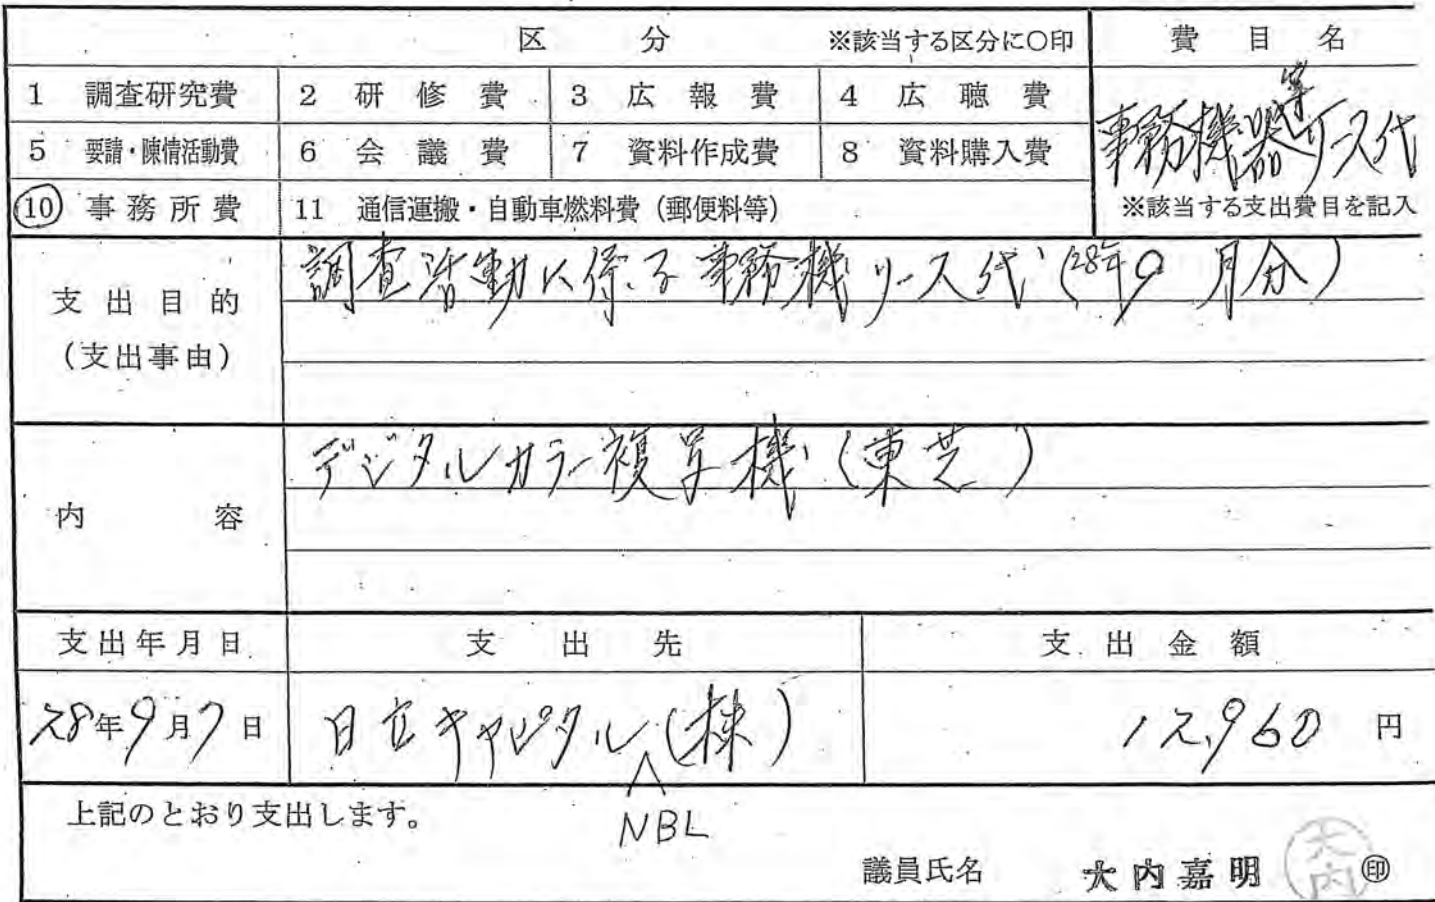 区 分 ※該当する区分に○印 費 目 名
1 調査研究費 2 研 修 費 3 広 報 費 4 広 聴 費
事務機器等リース代
5 要請・陳情活動費 6 会 議 費 7 資料作成費 8 資料購入費
⑩ 事 務 所 費 11 通信運搬・自動車燃料費(郵便料等) ※該当する支出費目を記入
支 出 目 的
(支出事由)
調査活動に係る事務機リース代(28年9月分)
内 容
デジタルカラー複写機(東芝)
支出年月日 支 出 先 支 出 金 額
28年9月7日 日立キャピタルNBL(株) 12,960 円
上記のとおり支出します。
議員氏名 大内嘉明 大内 ㊞